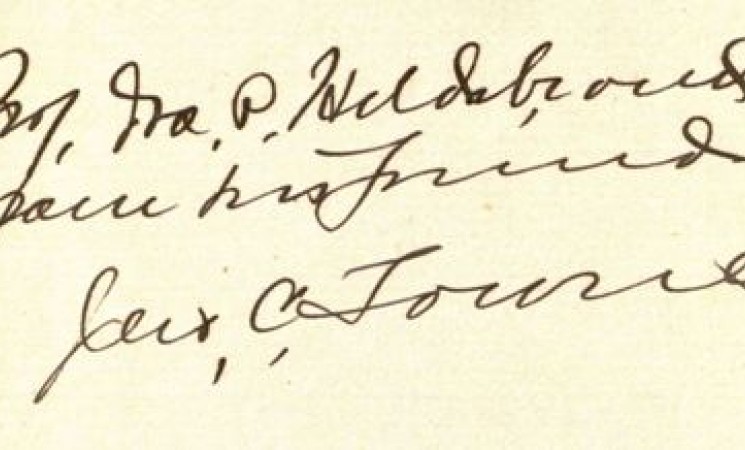 Prof, Ira. P. Hildebrand
from his friend
Jno, C. Towne